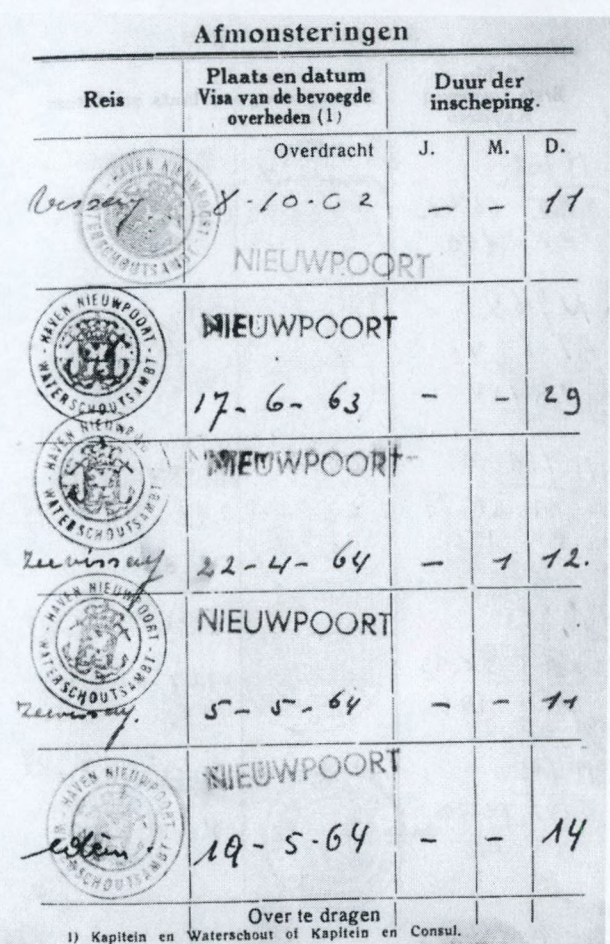 Afmonsteringen
Reis
Plaats en datum
Visa van de bevoegde
overheden (1)
Duur der
inscheping.
Overdracht J. M. D.
HAVEN NIEUWPOORT
WATERSCHOUTSAMBT
8-10-62 — - 11
NIEUWPOORT
HAVEN NIEUWPOORT
WATERSCHOUTSAMBT
NIEUWPOORT
17-6-63 - - 29
HAVEN NIEUWPOORT
WATERSCHOUTSAMBT
NIEUWPOORT
22-4-64 - 1 12.
HAVEN NIEUWPOORT
WATERSCHOUTSAMBT
NIEUWPOORT
5-5-64 - - 11
HAVEN NIEUWPOORT
WATERSCHOUTSAMBT
NIEUWPOORT
19-5-64 - - 14
Over te dragen
1) Kapitein en Waterschout of Kapitein en Consul.